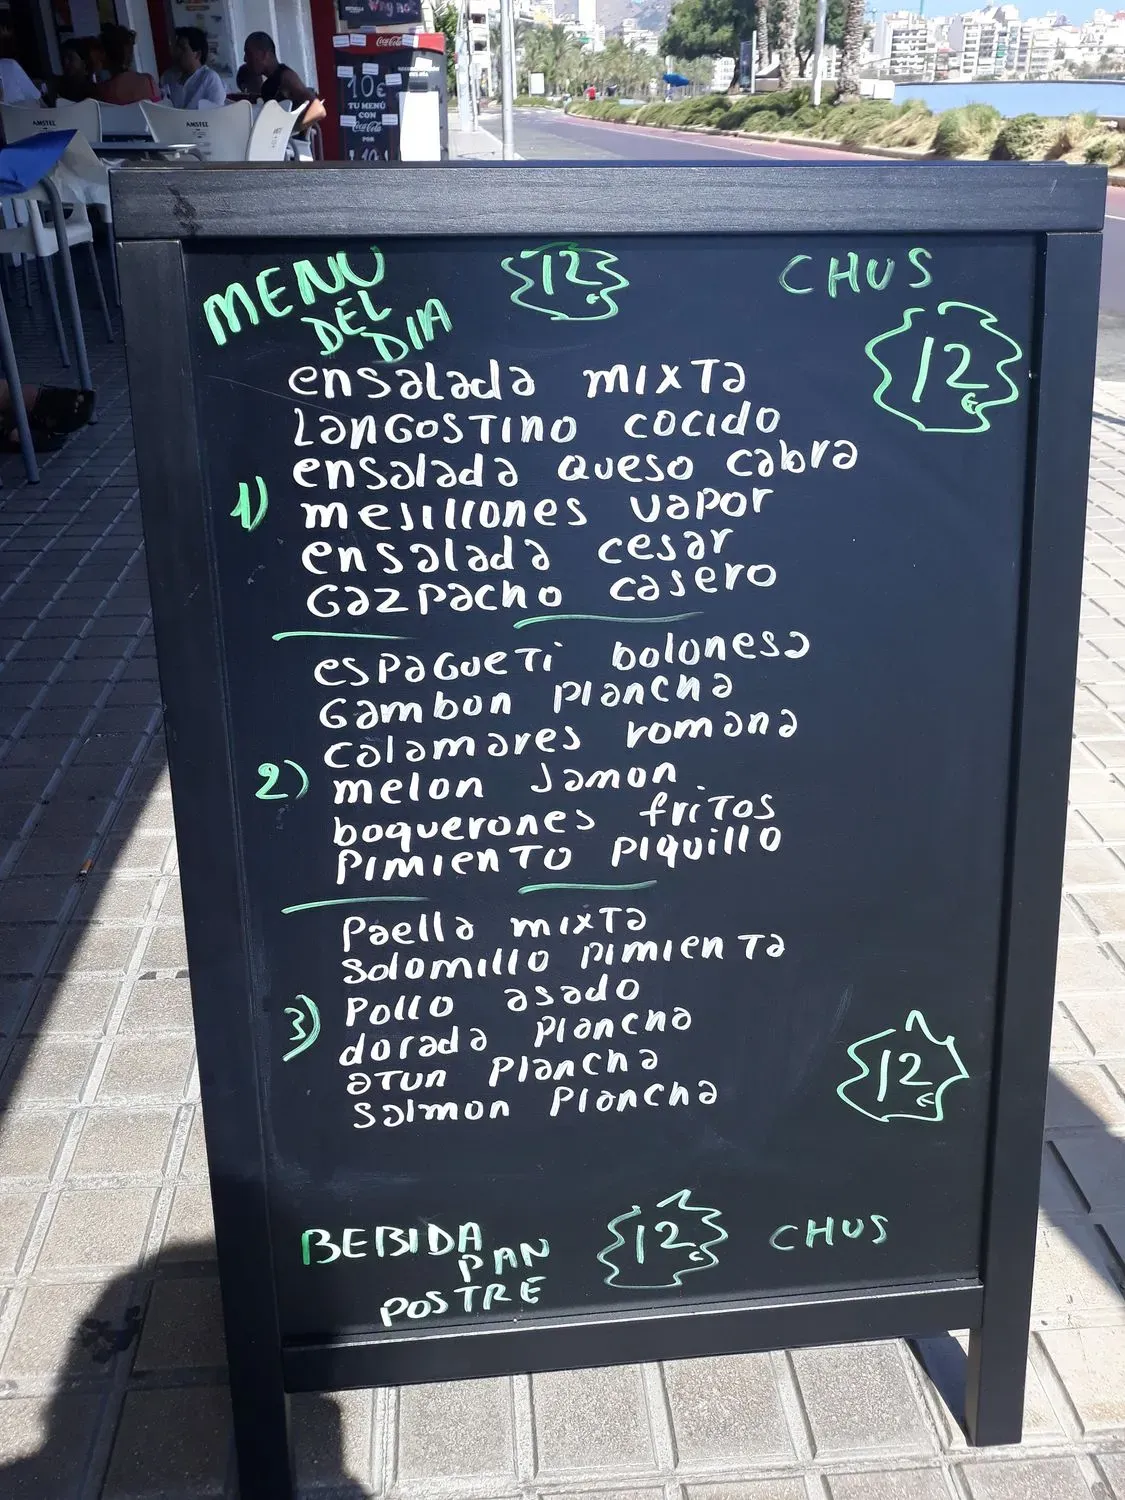 Coca-Cola
10€
TU MENÚ
CON
Coca-Cola
POR
AMSTEL
AMSTEL
MENU
DEL
DIA
12€
CHUS
12€
ensalada mixTa
LanGosTino cocido
ensalada queso cabra
1)
mesillones vapor
ensalada cesar
Gazpacho casero
espagueTi bolonesa
Gambon plancha
calamares romana
2)
melon Jamon
boquerones friTos
PimienTo piquillo
Paella mixTa
solomillo pimienTa
3)
Pollo asado
dorada plancha
aTun plancha
salmon plancha
12€
BEBIDA
PAN
POSTRE
12€
CHUS